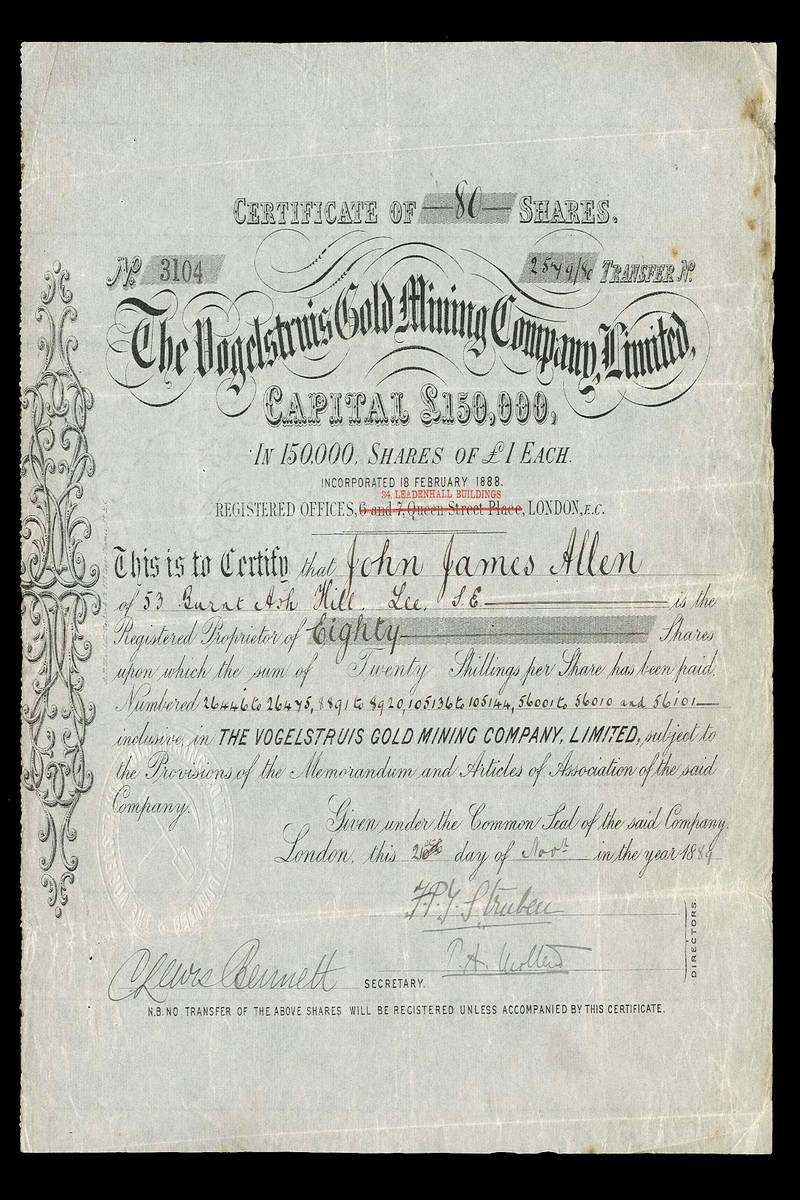 CERTIFICATE OF —80— SHARES.
No. 3104 2549/80 TRANSFER No.
The Vogelstruis Gold Mining Company, Limited,
CAPITAL £150,000,
IN 150,000, SHARES OF £1 EACH.
INCORPORATED 18 FEBRUARY 1888.
34, LEADENHALL BUILDINGS
REGISTERED OFFICES, 6 and 7, Queen Street Place, LONDON, E.C.
This is to Certify that John James Allen
of 53 Burnt Ash Hill, Lee, S.E. is the
Registered Proprietor of Eighty Shares
upon which the sum of Twenty Shillings per Share has been paid.
Numbered 26446 to 26475, 8891 to 8920, 105136 to 105144, 56001 to 56010 and 56101—
inclusive, in THE VOGELSTRUIS GOLD MINING COMPANY, LIMITED, subject to
the Provisions of the Memorandum and Articles of Association of the said
Company.
Given under the Common Seal of the said Company.
London, this 26th day of Novr. in the year 1889
F.P.T. Struben
DIRECTORS.
C Lewis Bennett SECRETARY.
N.B. NO TRANSFER OF THE ABOVE SHARES WILL BE REGISTERED UNLESS ACCOMPANIED BY THIS CERTIFICATE.